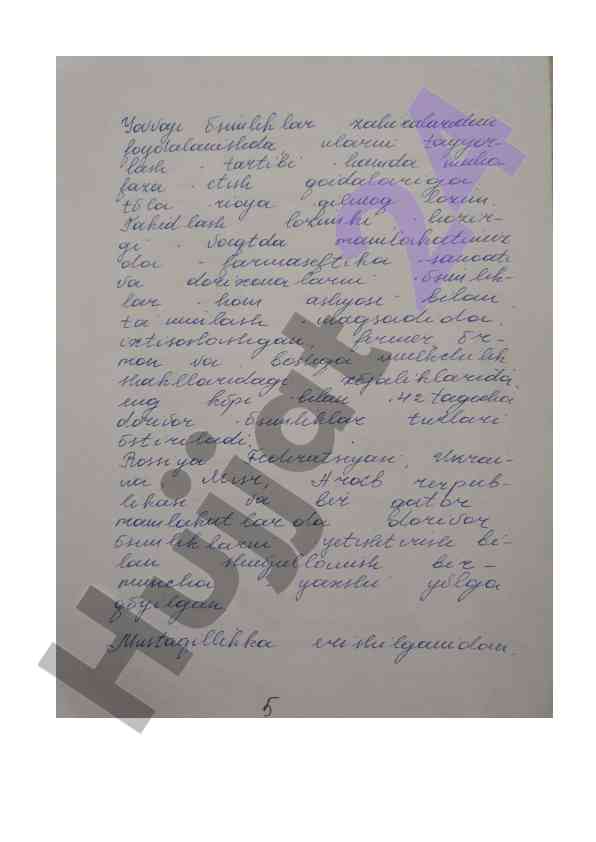 Yovvoyi õsimliklar xalukalaridan
foydalanishda, ularni tayyor-
lash tartibi hamda muho-
faza etish qoidalariga
tõla rioya qilmoq lozim.
Takidlash lozimki hozir-
gi vaqtda mamlakatimiz
da farmaseftika sanoati
va dorixonalarni õsimlik-
lar hom ashyosi bilan
ta'minlash maqsadida,
ixtisoslashgan, fermer, õr-
mon va boshqa mulkchilik
shakllaridagi xõjaliklarida,
eng kõpi bilan 42 tagacha
dorivor õsimliklar turlari
õstiriladi.
Rossiya Federatsiyasi, Ukrai-
na Misr, Arab respub-
likasi va bir qator
mamlakatlarda dorivor
õsimliklarni yetishtirish bi-
lan shuğullanish bir-
muncha yaxshi yõlga
qõyilgan.
Mustaqillikka erishilgandan
5
Hujjat 24